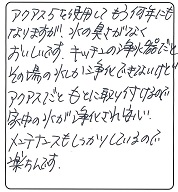 アクアスラを使用してもう何年にも
なりますが、水の臭さがなく
おいしいです。キッチンの浄水器だと
その場の水しか浄化できないけど
アクアスラだともとに取り付けるので
家中の水が浄化されおいしい。
メンテナンスもしっかりしているので
楽ちんです。